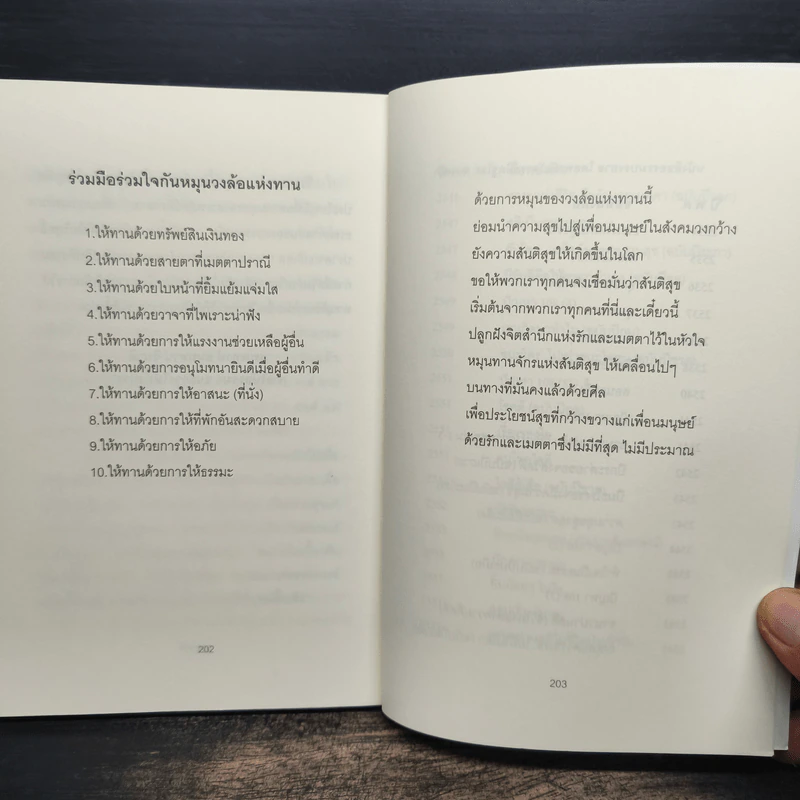 ร่วมมือร่วมใจกันหมุนวงล้อแห่งทาน
1.ให้ทานด้วยทรัพย์สินเงินทอง
2.ให้ทานด้วยสายตาที่เมตตาปราณี
3.ให้ทานด้วยใบหน้าที่ยิ้มแย้มแจ่มใส
4.ให้ทานด้วยวาจาที่ไพเราะน่าฟัง
5.ให้ทานด้วยการให้แรงงานช่วยเหลือผู้อื่น
6.ให้ทานด้วยการอนุโมทนายินดีเมื่อผู้อื่นทำดี
7.ให้ทานด้วยการให้อาสนะ (ที่นั่ง)
8.ให้ทานด้วยการให้ที่พักอันสะดวกสบาย
9.ให้ทานด้วยการให้อภัย
10.ให้ทานด้วยการให้ธรรมะ
202
ด้วยการหมุนของวงล้อแห่งทานนี้
ย่อมนำความสุขไปสู่เพื่อนมนุษย์ในสังคมวงกว้าง
ยังความสันติสุขให้เกิดขึ้นในโลก
ขอให้พวกเราทุกคนจงเชื่อมั่นว่าสันติสุข
เริ่มต้นจากพวกเราทุกคนที่นี่และเดี๋ยวนี้
ปลูกฝังจิตสำนึกแห่งรักและเมตตาไว้ในหัวใจ
หมุนทานจักรแห่งสันติสุข ให้เคลื่อนไปๆ
บนทางที่มั่นคงแล้วด้วยศีล
เพื่อประโยชน์สุขที่กว้างขวางแก่เพื่อนมนุษย์
ด้วยรักและเมตตาซึ่งไม่มีที่สุด ไม่มีประมาณ
203